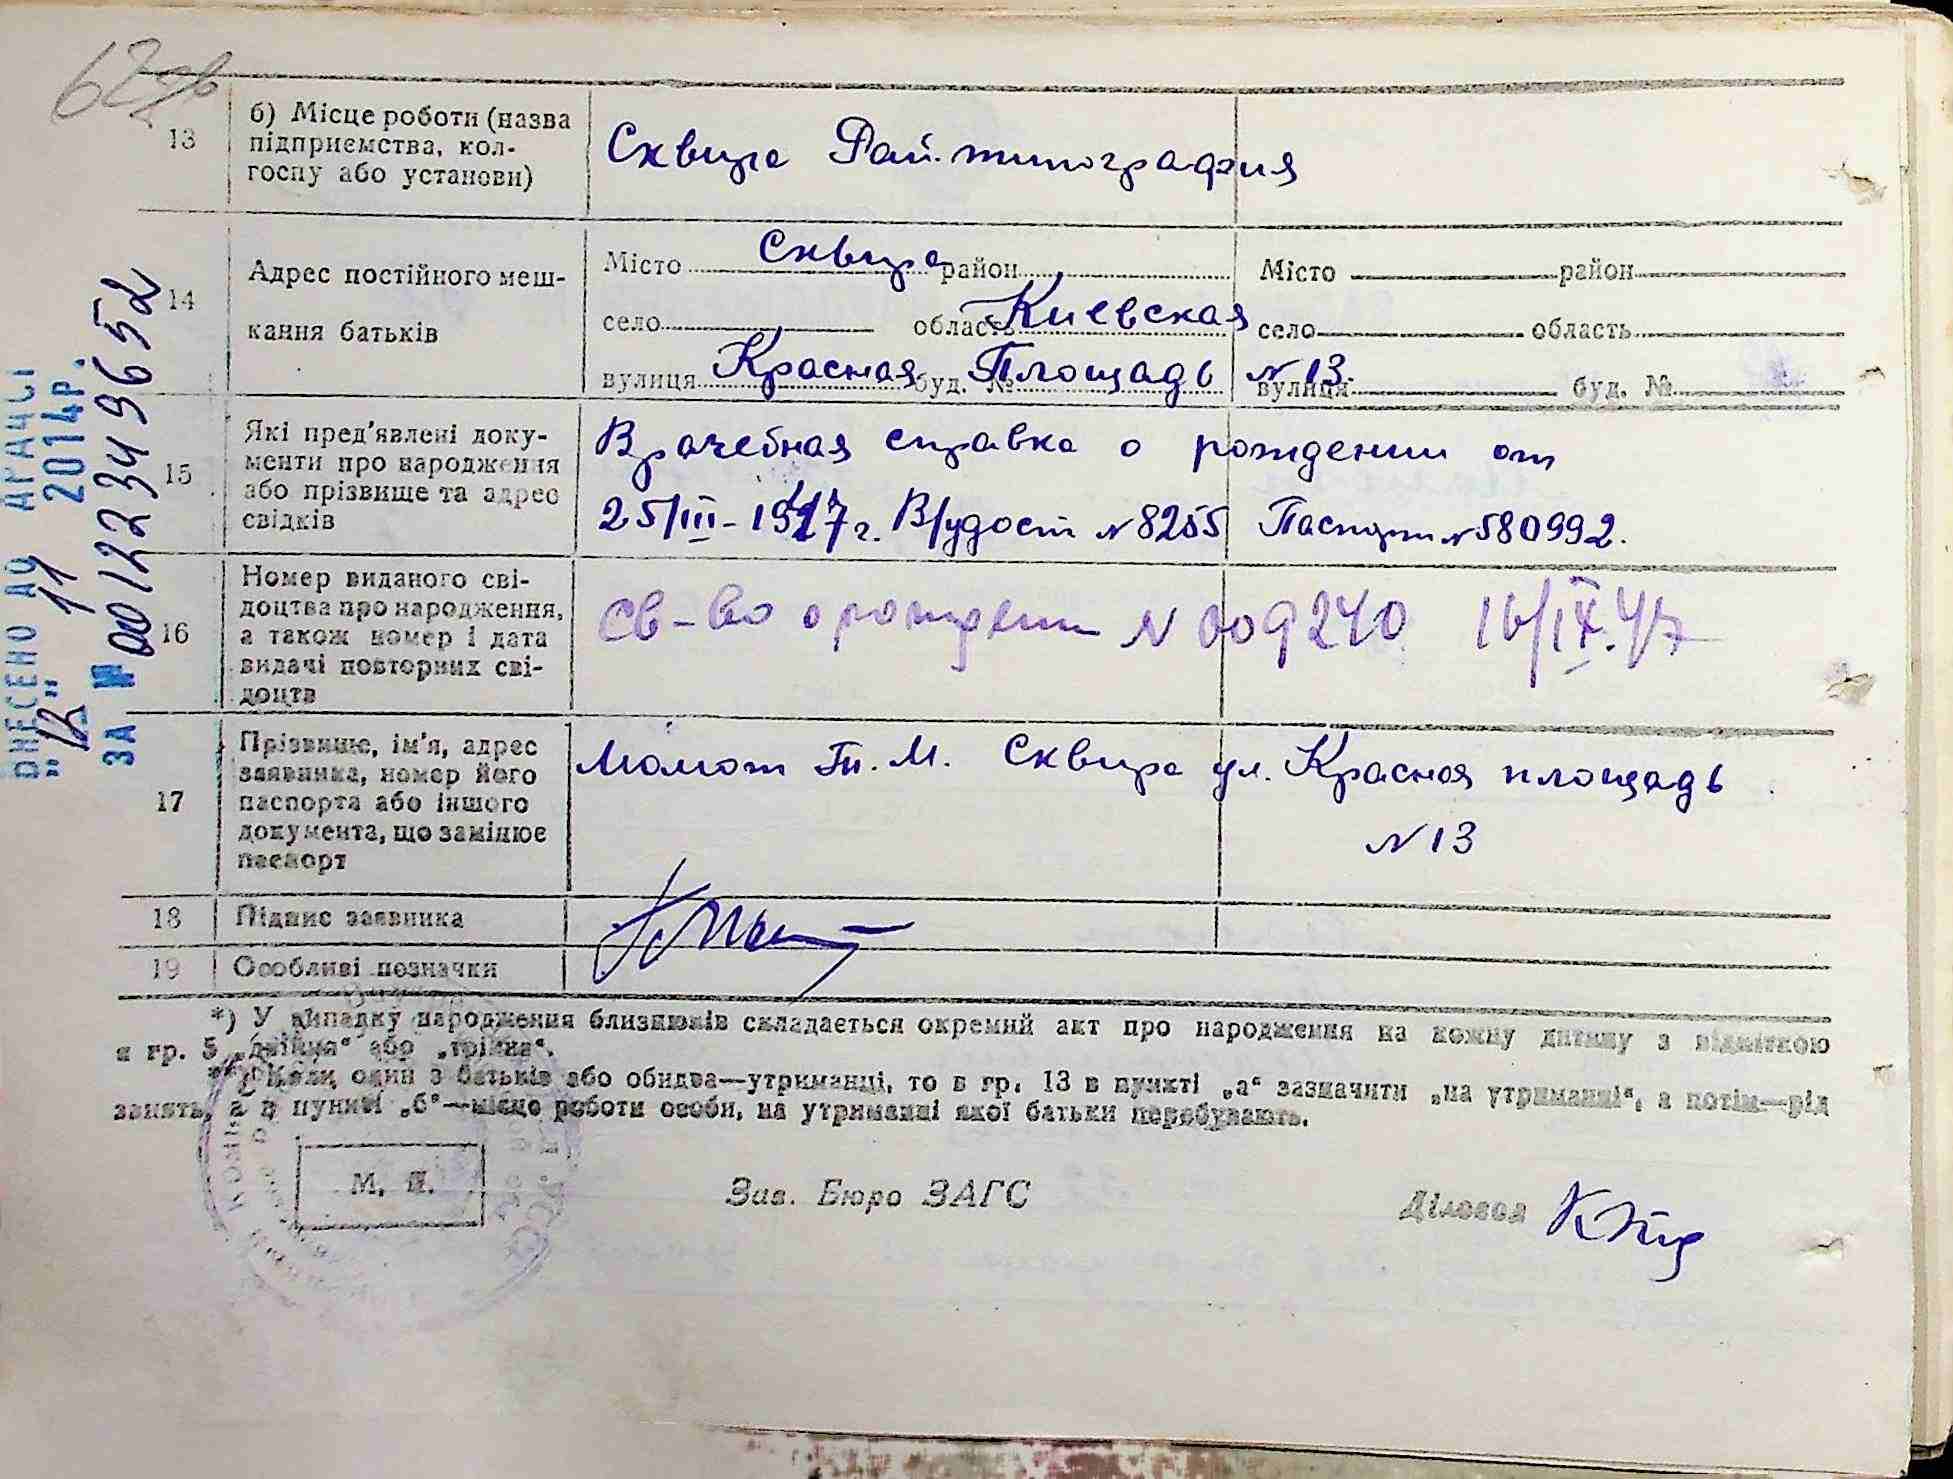 13
б) Місце роботи (назва
підприємства, кол-
госпу або установи)
Сквира Рай.типография
14
Адрес постійного меш-
кання батьків
Місто Сквира район
село область Киевская
вулиця Красная буд. № Площадь №13.
Місто район
село область
вулиця буд. №
15
Які пред'явлені доку-
менти про народження
або прізвище та адрес
свідків
Врачебная справка о рождении от
25/III-1947г. В/удост №8255 Паспорт №580992.
16
Номер виданого сві-
доцтва про народження,
а також номер і дата
видачі повторних сві-
доцтв
Св-во о рождении N 009240 16/IX.47
17
Прізвище, ім'я, адрес
заявника, номер його
паспорта або іншого
документа, що замінює
паспорт
Момот М. Сквира ул. Красная площадь
№13
18
Підпис заявника
19
Особливі позначки
*) У випадку народження близнюків складається окремий акт про народження на кожну дитину з відміткою
в гр. 5 „двійня“ або „трійня“.
**) Коли один з батьків або обидва—утриманці, то в гр. 13 в пункті „а“ зазначити „на утриманні“, а потім—рід
занять, а в пункті „б“—місце роботи особи, на утриманні якої батьки перебувають.
М. П.
Зав. Бюро ЗАГС
Діловод
ВНЕСЕНО ДО ДРАЦСГ
„12„ 11 2014р.
ЗА № 00122349652